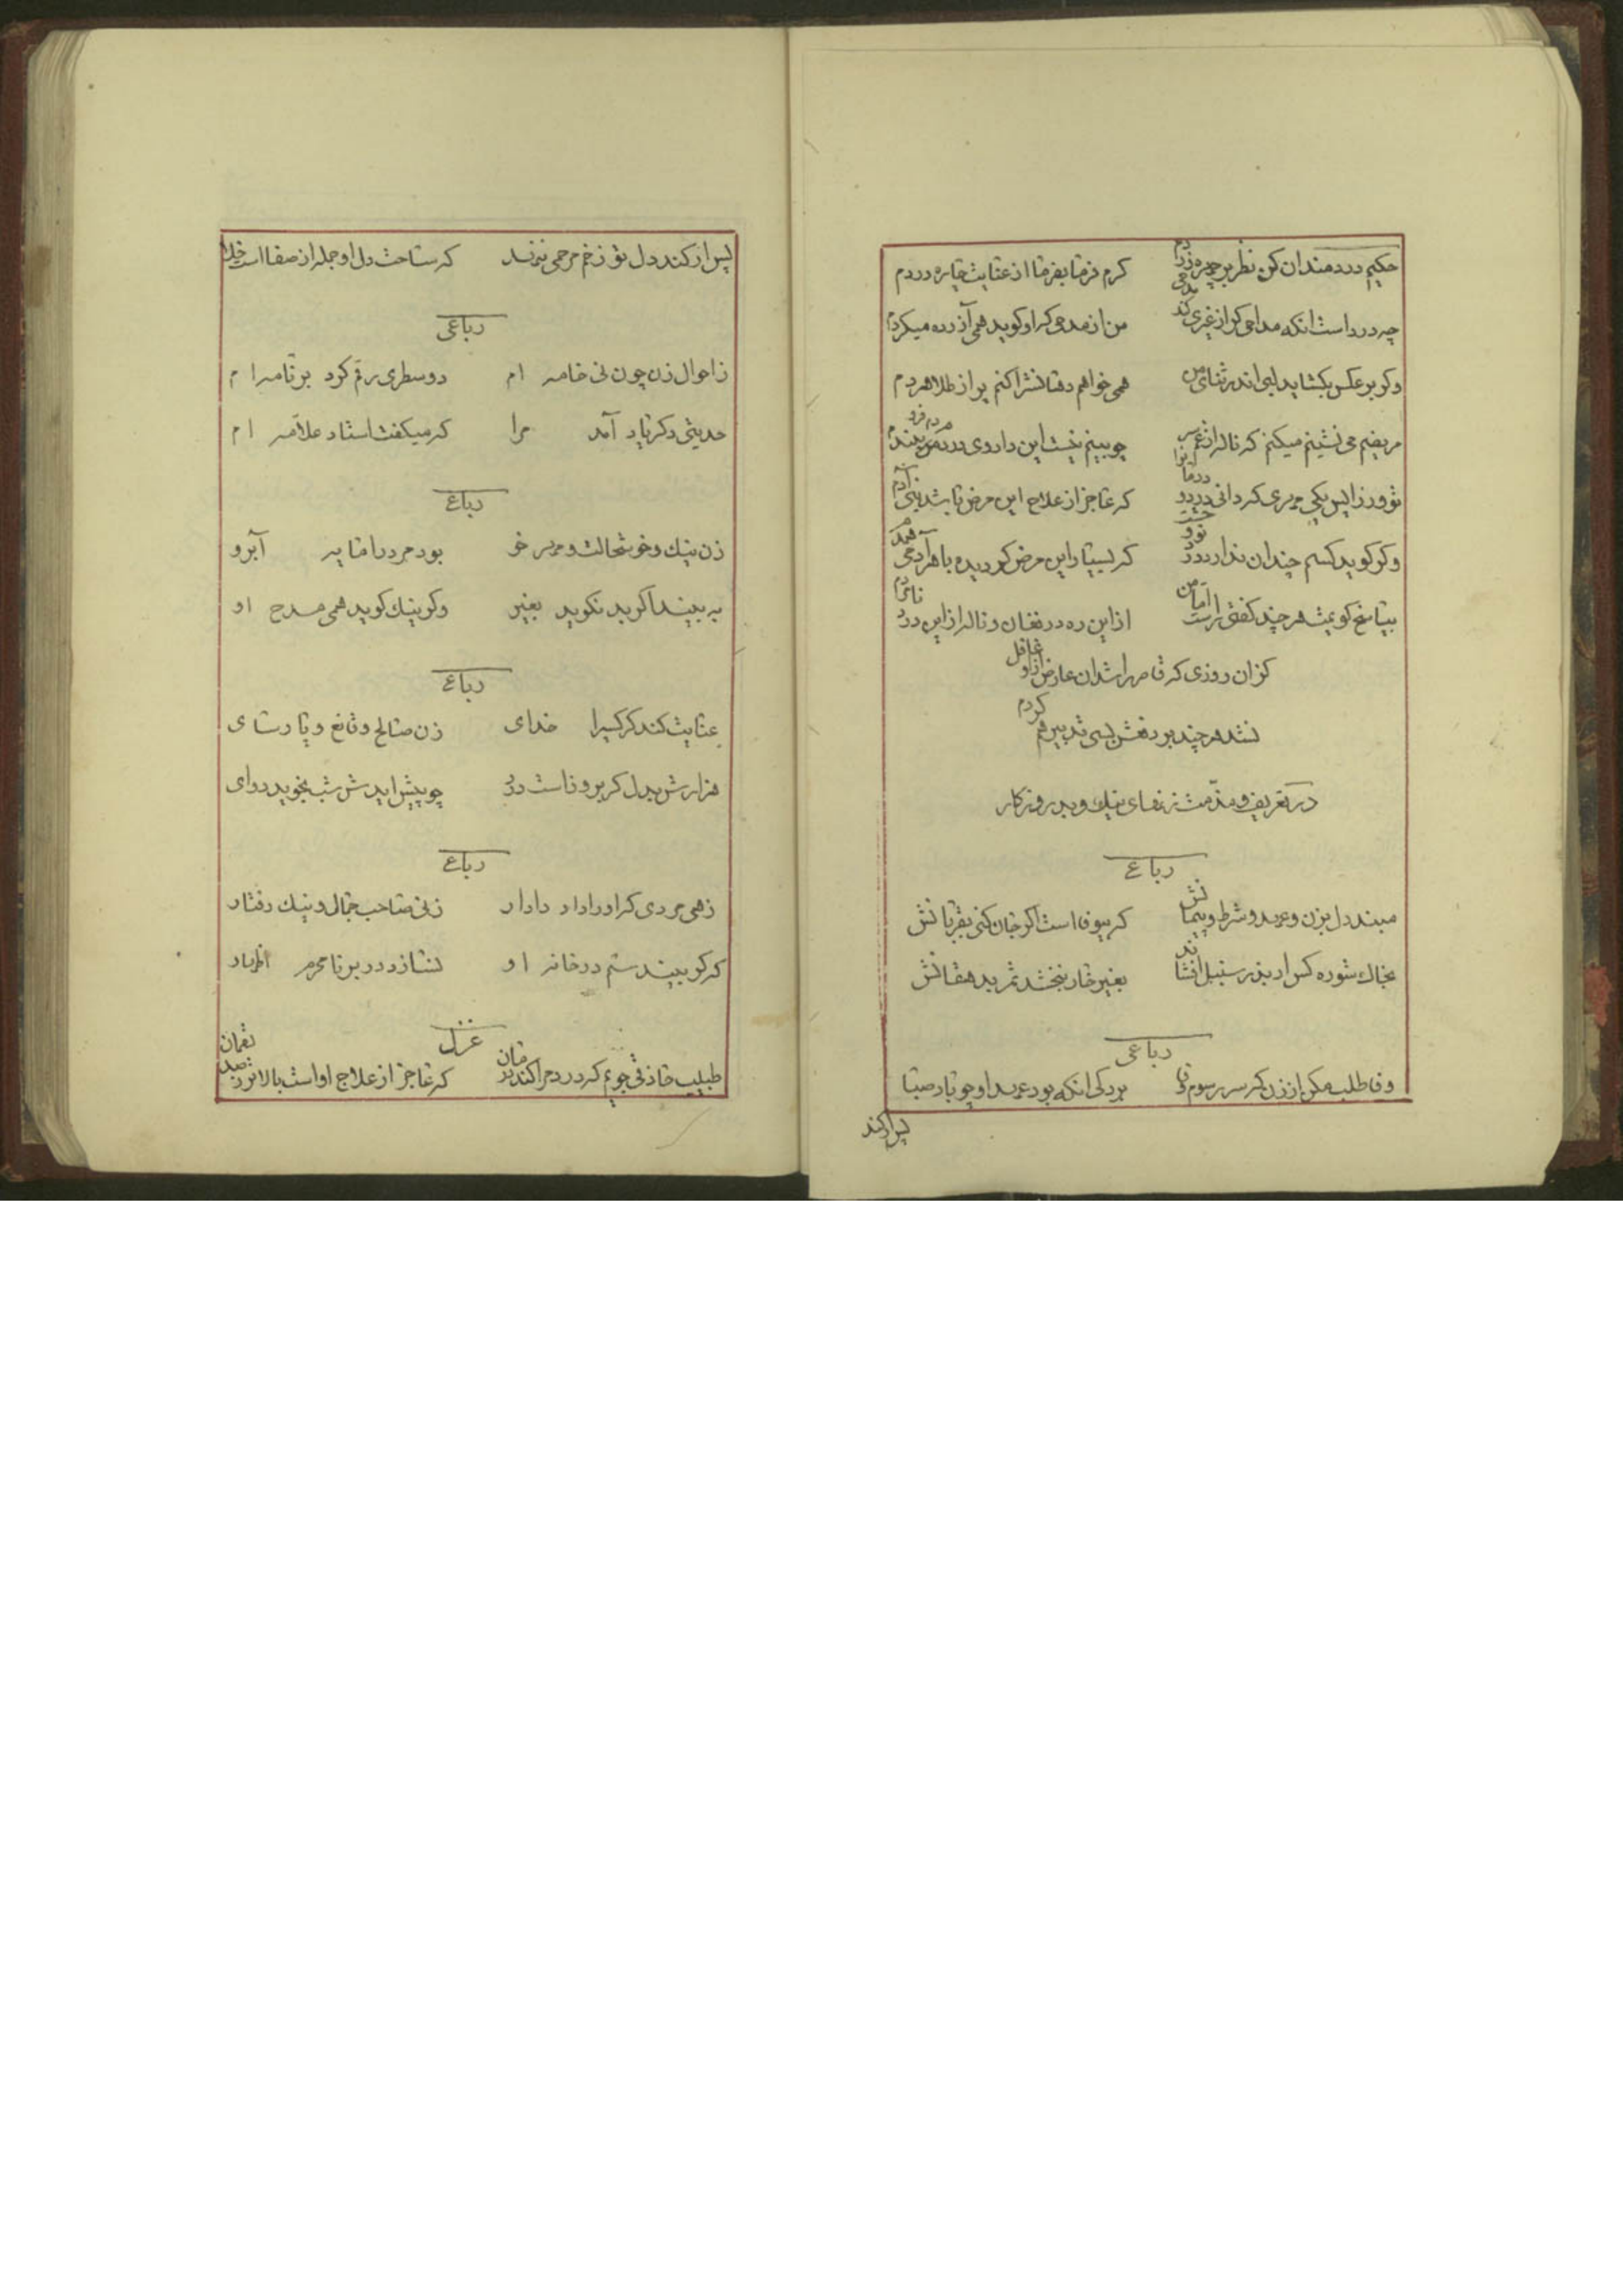 حکیم دردمندان کن نظر بر چهره زردم    کرم فرما بفرما از عنایت چاره دردم
چه درد است انکه مداحی کر از غیری کند مدحی    من از مدحی که او کوید همی آزرده میکردم
وکر برعکس بکشاید لبی اندر ثنای من    همی خواهم دهانشرا کنم پر از طلا هردم
مریضم می نشینم میکنم که ناله از غم    چو بینم نیست این داروی درد
تو ورزا پس یکی مهری کردانی درد    که عاجز از علاج این مرض باشد بنی آدم
وکر کوید کسم چندان ندارد درد    که بسیار این مرض کردیده با هر آدمی همدم
بپاسخ کویمش هر چند کفتی راست اما من    از این ره در فغان و ناله از این درد
کزان روزی که قاهر را شد آن عارض از او غافل
نشد هر چند بر دفعش بسی تدبیر هم کردم
در تعریف و مذمت زنهای نیك و بد روزکار
رباعی
مبند دل بزن و عهد و شرط و پیمانش    که بیوفا است اکر جان کنی بقربانش
بخاك شوره کس ار بذر سنبل افشاند    بغیر خار نبخشد ثمر بدهقانش
رباعی
وفا طلب مکن از زن که سر رسوم وفا    برد کی انکه بود عهد او چو باد صبا
پس ار کند
پس ار کند دل تو زخم مرحمی ننهد    که ساحت دل او جمله از صفا است خلا
رباعی
ز احوال زن چون نی خامه ام    دو سطری رقم کرد بر نامه ام
حدیثی دکر یاد آمد مرا    که میکفت استاد علامه ام
رباعی
زن نیك و خوشحالت و مهر خو    بود مرد را مایه آبرو
به بیند اکر بد نکوید بغیر    وکر نیك کوید همی مدح او
رباعی
عنایت کند کر کسیرا خدای    زن صالح و قانع و پارسای
هزارش بدل کر بروناست درد    چو پیش ایدش شب بجوید دوای
رباعی
زهی مردی که او را داد دادار    زنی صاحب جمال و نیك رفتار
که کر بیند ستم در خانه او    نسازد در بر نامحرم اظهار
غزل
طبیب حاذقی جویم که دردم را کند درمان    که عاجز از علاج او است بالاتر ز صد لقمان